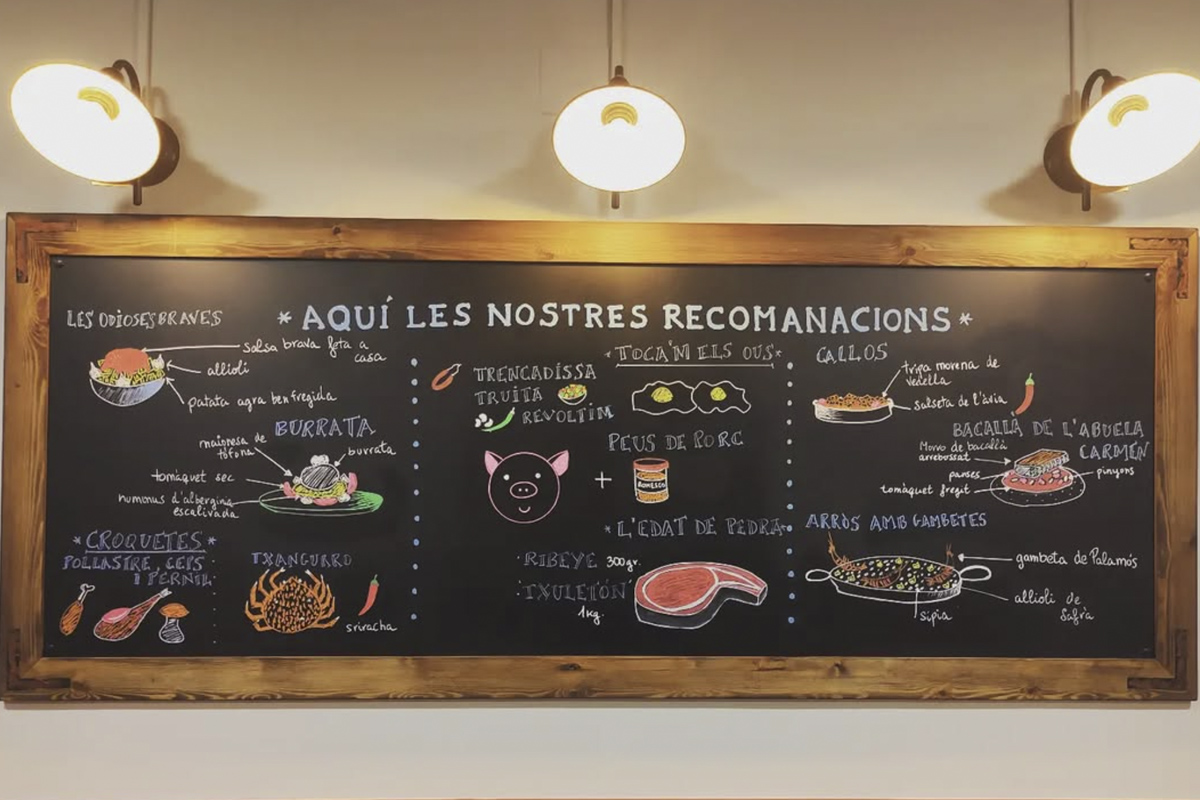 * AQUÍ LES NOSTRES RECOMANACIONS *
LES ODIOSES BRAVES
salsa brava feta a
casa
allioli
patata agra ben fregida
BURRATA
maionesa de
tòfona
burrata
tomàquet sec
hummus d'albergínia
escalivada
* CROQUETES *
POLLASTRE, CEPS
I PERNIL
TXANGURRO
sriracha
* TOCA'M ELS OUS *
TRENCADISSA
TRUITA
REVOLTIM
PEUS DE PORC
+
* L'EDAT DE PEDRA *
· RIBEYE 300gr.
· TXULETÓN
1kg.
CALLOS
tripa morena de
vedella
salseta de l'àvia
BACALLÀ DE L'ABUELA
CARMEN
Morro de bacallà
arrebossat
panses
pinyons
tomàquet fregit
ARRÒS AMB GAMBETES
gambeta de Palamós
allioli de
safrà
sípia